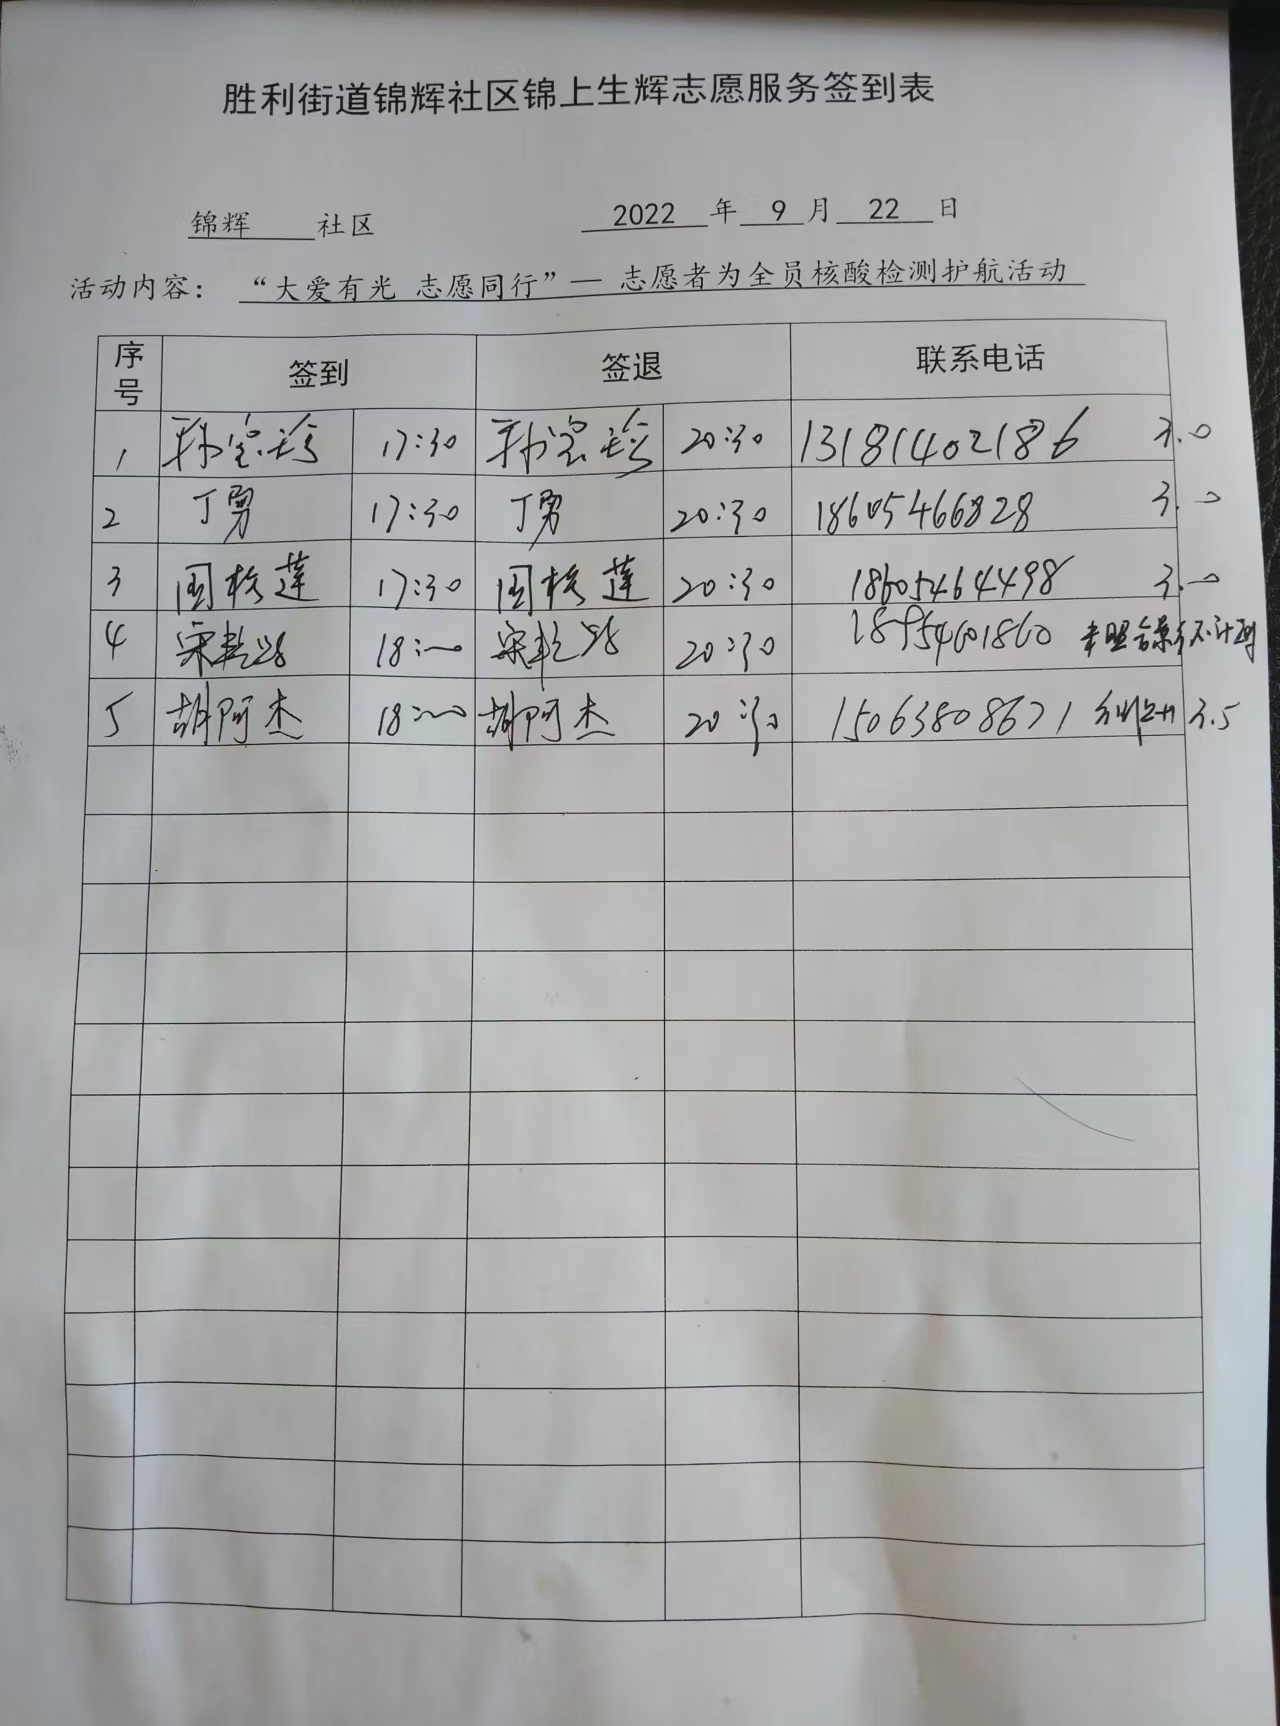 胜利街道锦辉社区锦上生辉志愿服务签到表
锦辉 社区 2022 年 9 月 22 日
活动内容： “大爱有光 志愿同行”— 志愿者为全员核酸检测护航活动
序号 签到 签退 联系电话
1 17:30 20:30 13181402186 3.0
2 丁勇 17:30 丁勇 20:30 18605466828 3.0
3 17:30 20:30 18605464498 3.0
4 18:00 20:30 18954601860
5 胡阿杰 18:00 胡阿杰 20:30 15063808671 3.5